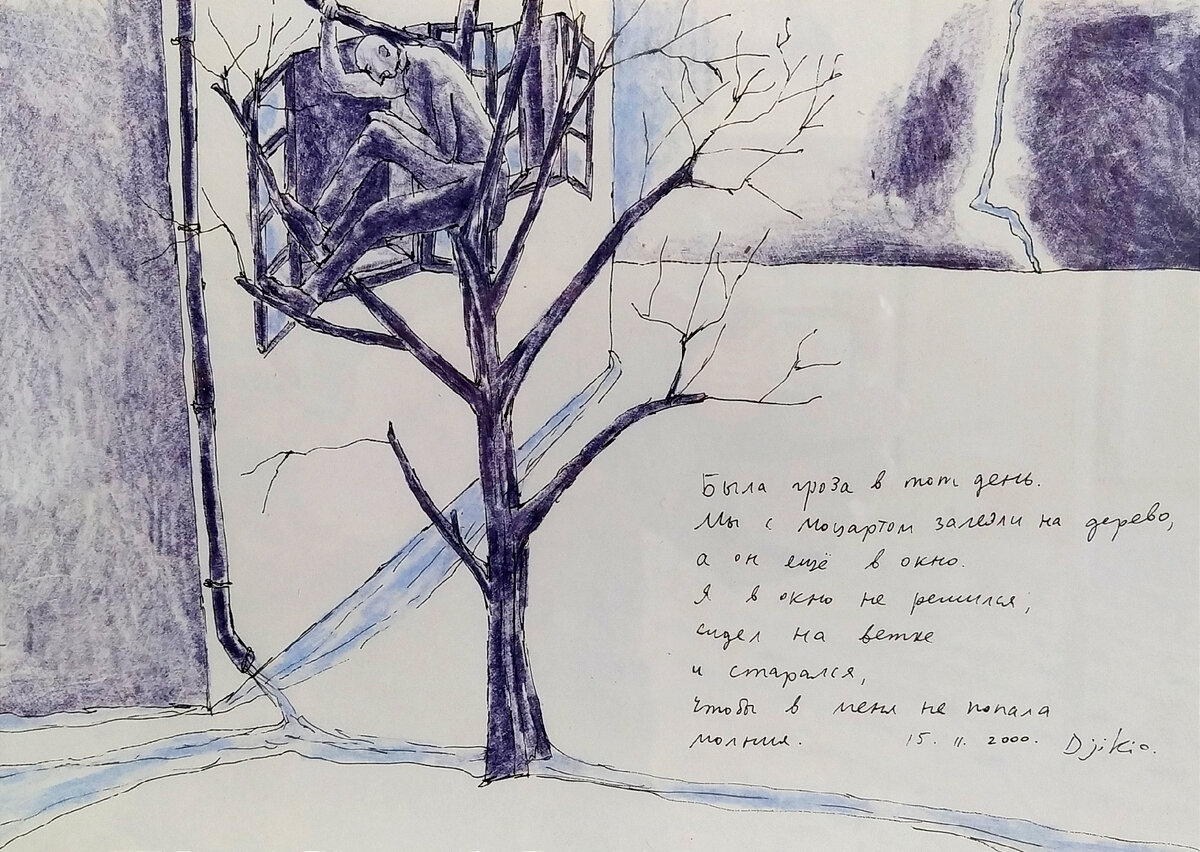 Была гроза в тот день.
Мы с Моцартом залезли на дерево,
а он ещё в окно.
Я в окно не решился,
сидел на ветке
и старался,
чтобы в меня не попала
молния. 15. 11. 2000. Djikia.